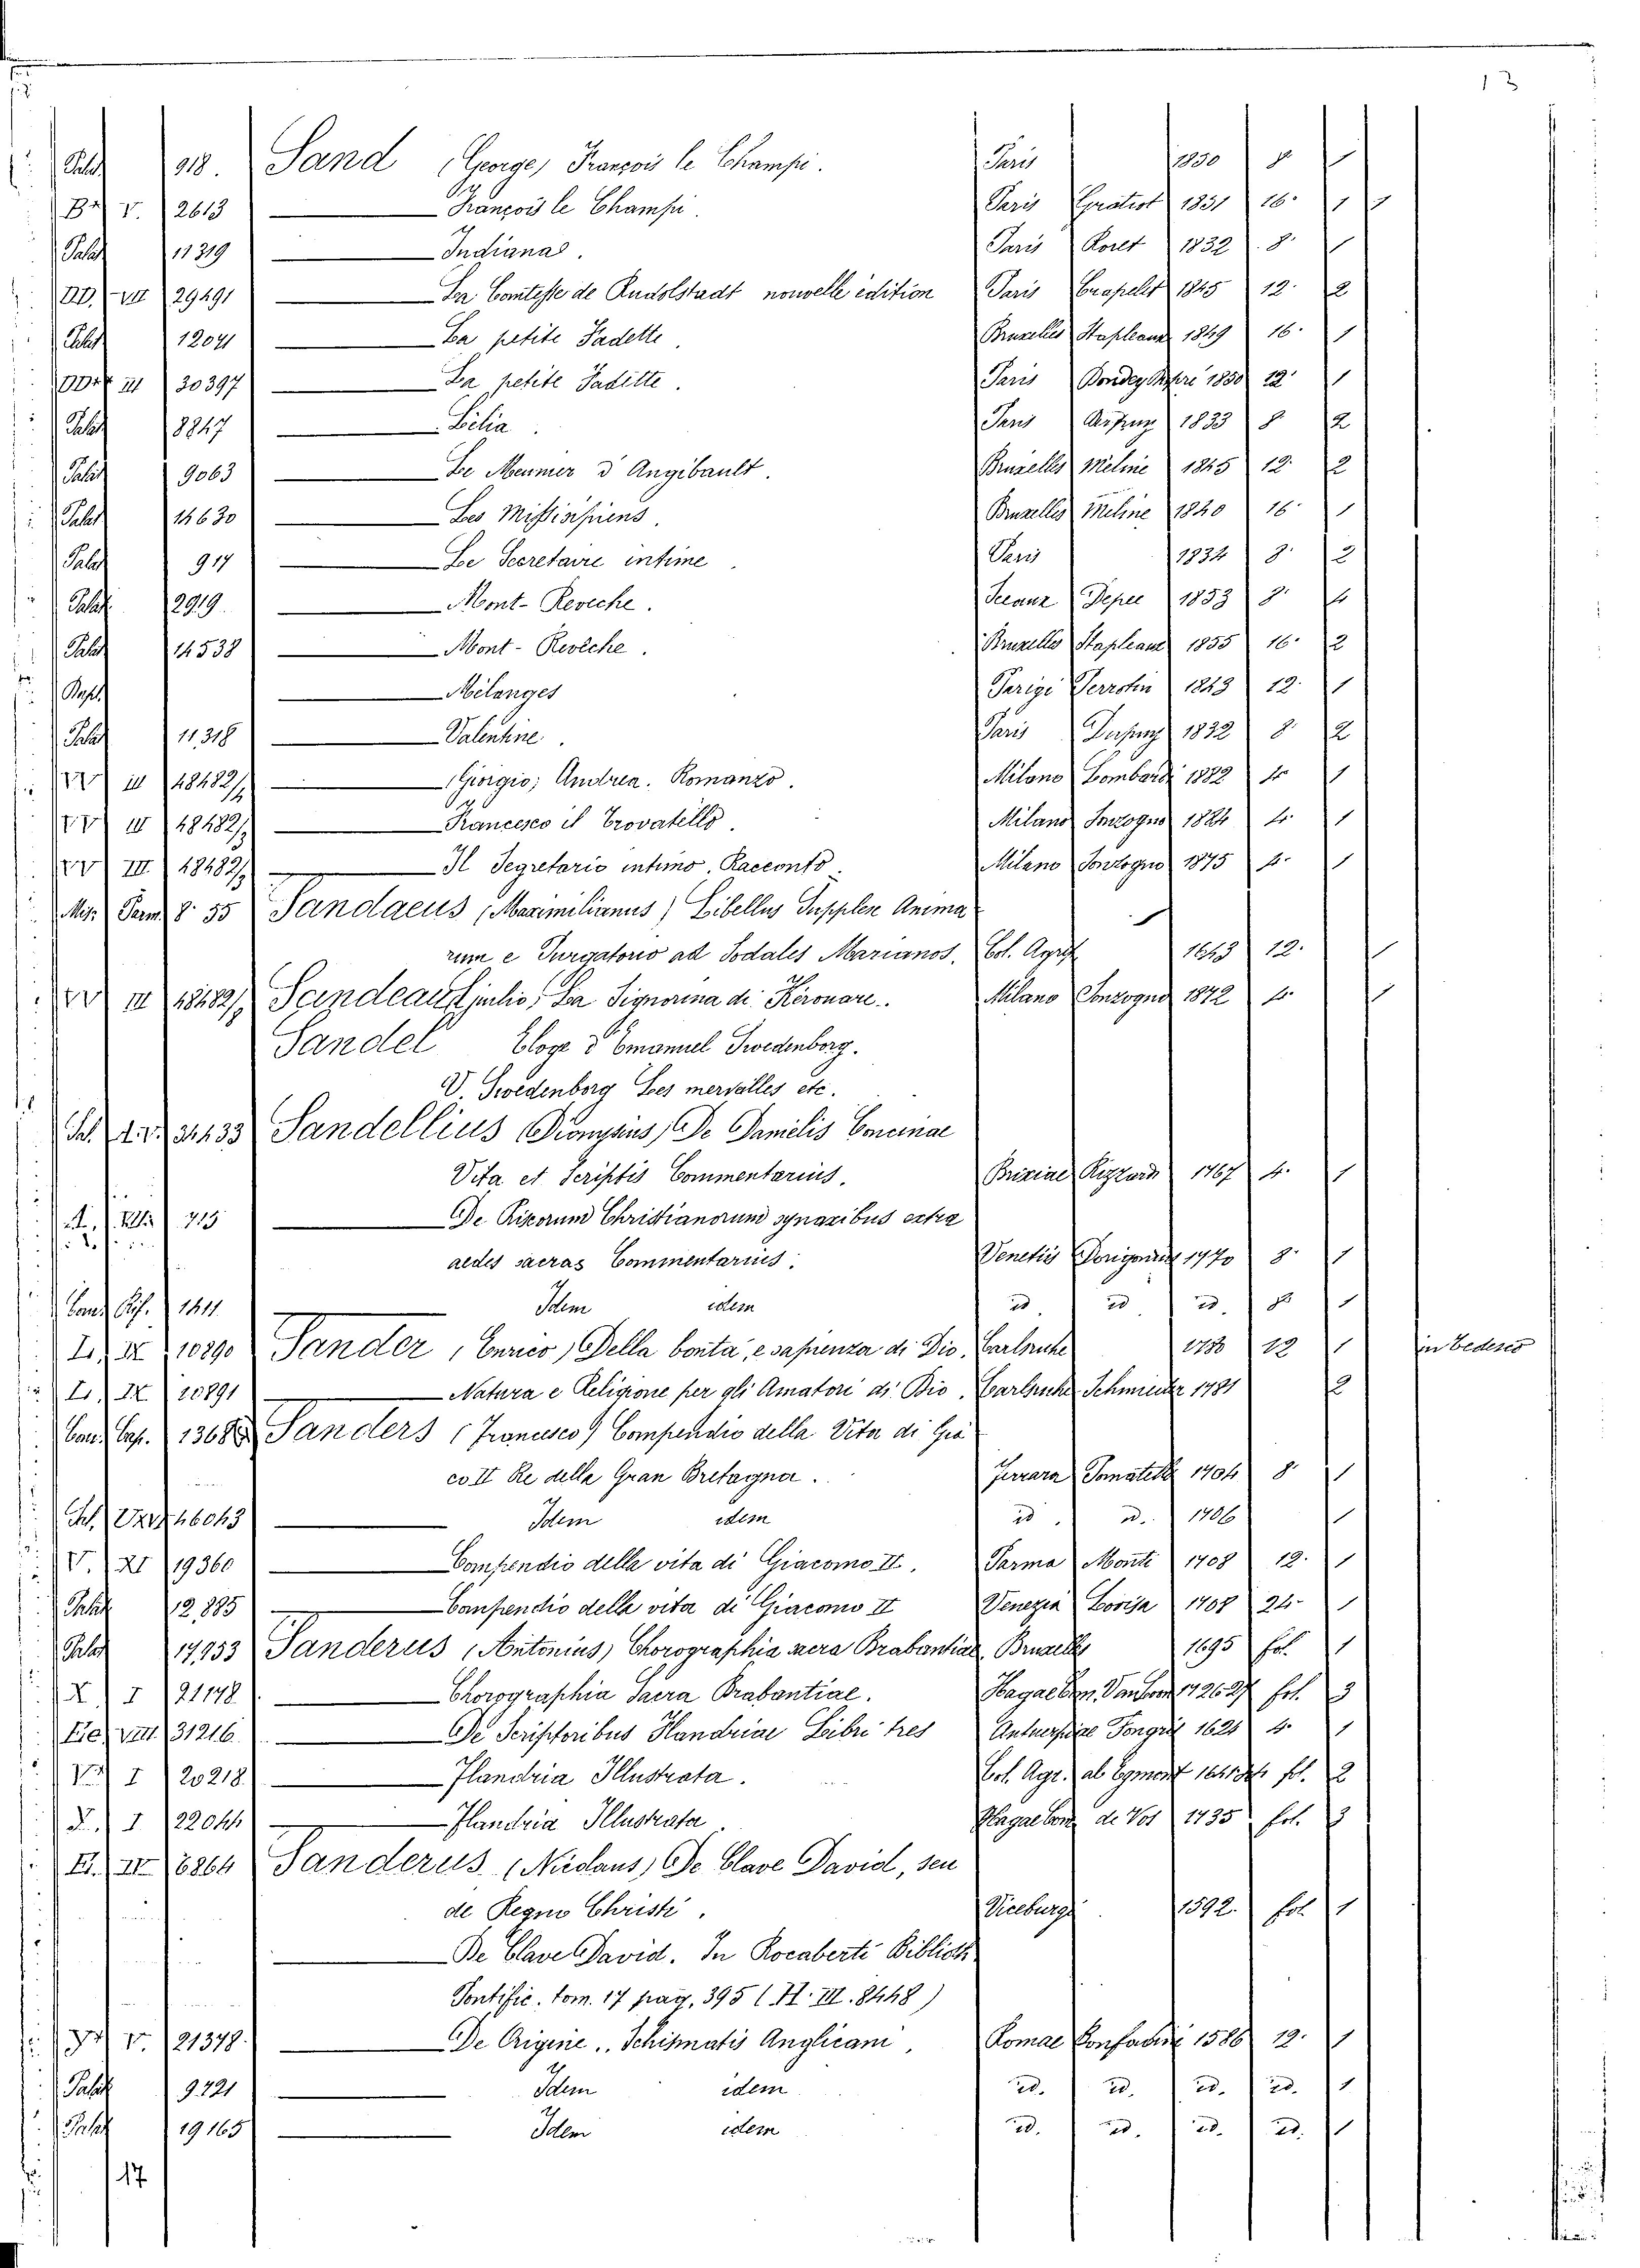 13
Palat 918. Sand (George) François le Champi. Paris 1850 8 1
B V. 2613 François le Champi. Paris Gratiot 1851 16. 1 1
Palat 11319 Indiana. Paris Roret 1832 8. 1
DD. VII 29491 La Comtesse de Rudolstadt nouvelle édition Paris 1845 12. 2
Palat 12041 La petite Fadette. Bruxelles Stapleaux 1849 16. 1
III 30397 La petite Fadette. Paris 1850 12. 1
Palat 8847 Lélia. Paris 1833 8 2
Palat 9063 Le Meunier d'Angibault. Bruxelles Meline 1845 12. 2
Palat 14630 Les Missisipiens. Bruxelles Meline 1840 16. 1
Palat 917 Le Secretaire intime. Paris 1834 8. 2
Palat 12919. Mont-Reveche. Sceaux Depee 1853 8.
Palat 14538 Mont-Revêche. Bruxelles Stapleaux 1855 16. 2
Mélanges Parigi Perrotin 1843 12. 1
Palat 11,318 Valentine. Paris Dupuy 1832 8. 2
III 48482 (Giorgio) Andrea. Romanzo. Milano Lombardi 1882 4. 1
III 48482 Francesco il Trovatello. Milano Sonzogno 1884 4. 1
III. 48482 Il Segretario intimo. Racconto. Milano Sonzogno 1875 4. 1
Mis. Parm. 8. 55 Sandaeus (Maximilianus) Libellus Supplex Anima-
rum e Purgatorio ad Sodales Marianos. Col. Agrip 1643 12. 1
III 48482 Sandeau (Giulio) La Signorina di Keronare. Milano Sonzogno 1872 4. 1
Sandel Eloge d'Emanuel Swedenborg.
V. Swedenborg Les mervalles etc.
31433 Sandellius (Dionysius) De Danielis Concinae
Vita et Scriptis Commentarius. Brixiae Rizzardi 1767 4. 1
715 De Priscorum Christianorum synaxibus extra
aedes sacras Commentarius. Venetiis 1770 8. 1
1411 Idem idem id. id id. 8. 1
10890 Sander (Enrico) Della bontà, e sapienza di Dio. Carlsruhe 1780 12 1 in tedesco
L. IX 10891 Natura e Religione per gli Amatori di Dio. Carlsruhe Schmieder 1781 2
13688 Sanders (Francesco) Compendio della Vita di Gia-
co. II Re della Gran Bretagna. Ferrara Pomatelli 1704 8. 1
46043 Idem idem id. id. 1706 1
V. XI 19360 Compendio della vita di Giacomo II. Parma Monti 1708 12. 1
Palat 12,885 Compendio della vita di Giacomo II Venezia Lovisa 1708 24. 1
Palat 17,953 Sanderus (Antonius) Chorographia sacra Brabantiae. Bruxelles 1695 fol. 1
X I 21178 Chorographia Sacra Brabantiae. Hagae Com. Van Loom 1726.27 fol. 3
VIII. 31216 De Scriptoribus Flandriae Libri tres Antuerpiae Tongris 1624 4. 1
I 20218. Flandria Illustrata. Col. Agr. ab Egmont 1641.44 fol. 2
I 22044 Flandria Illustrata. Hagae Com. de Vos 1735 fol. 3
IV 6864 Sanderus (Nicolaus) De Clave David, seu
de Regno Christi. Wiceburgi 1592. fol 1
De Clave David. In Rocaberti Biblioth.
Pontific. tom. 17 pag. 395 (H. III. 8448)
V. 21378. De Origine.. Schismatis Anglicani. Romae Bonfadini 1586 12. 1
Palat 9721 Idem idem id. id. id. id. 1
Palat 19165 Idem idem id. id. id. id. 1
17